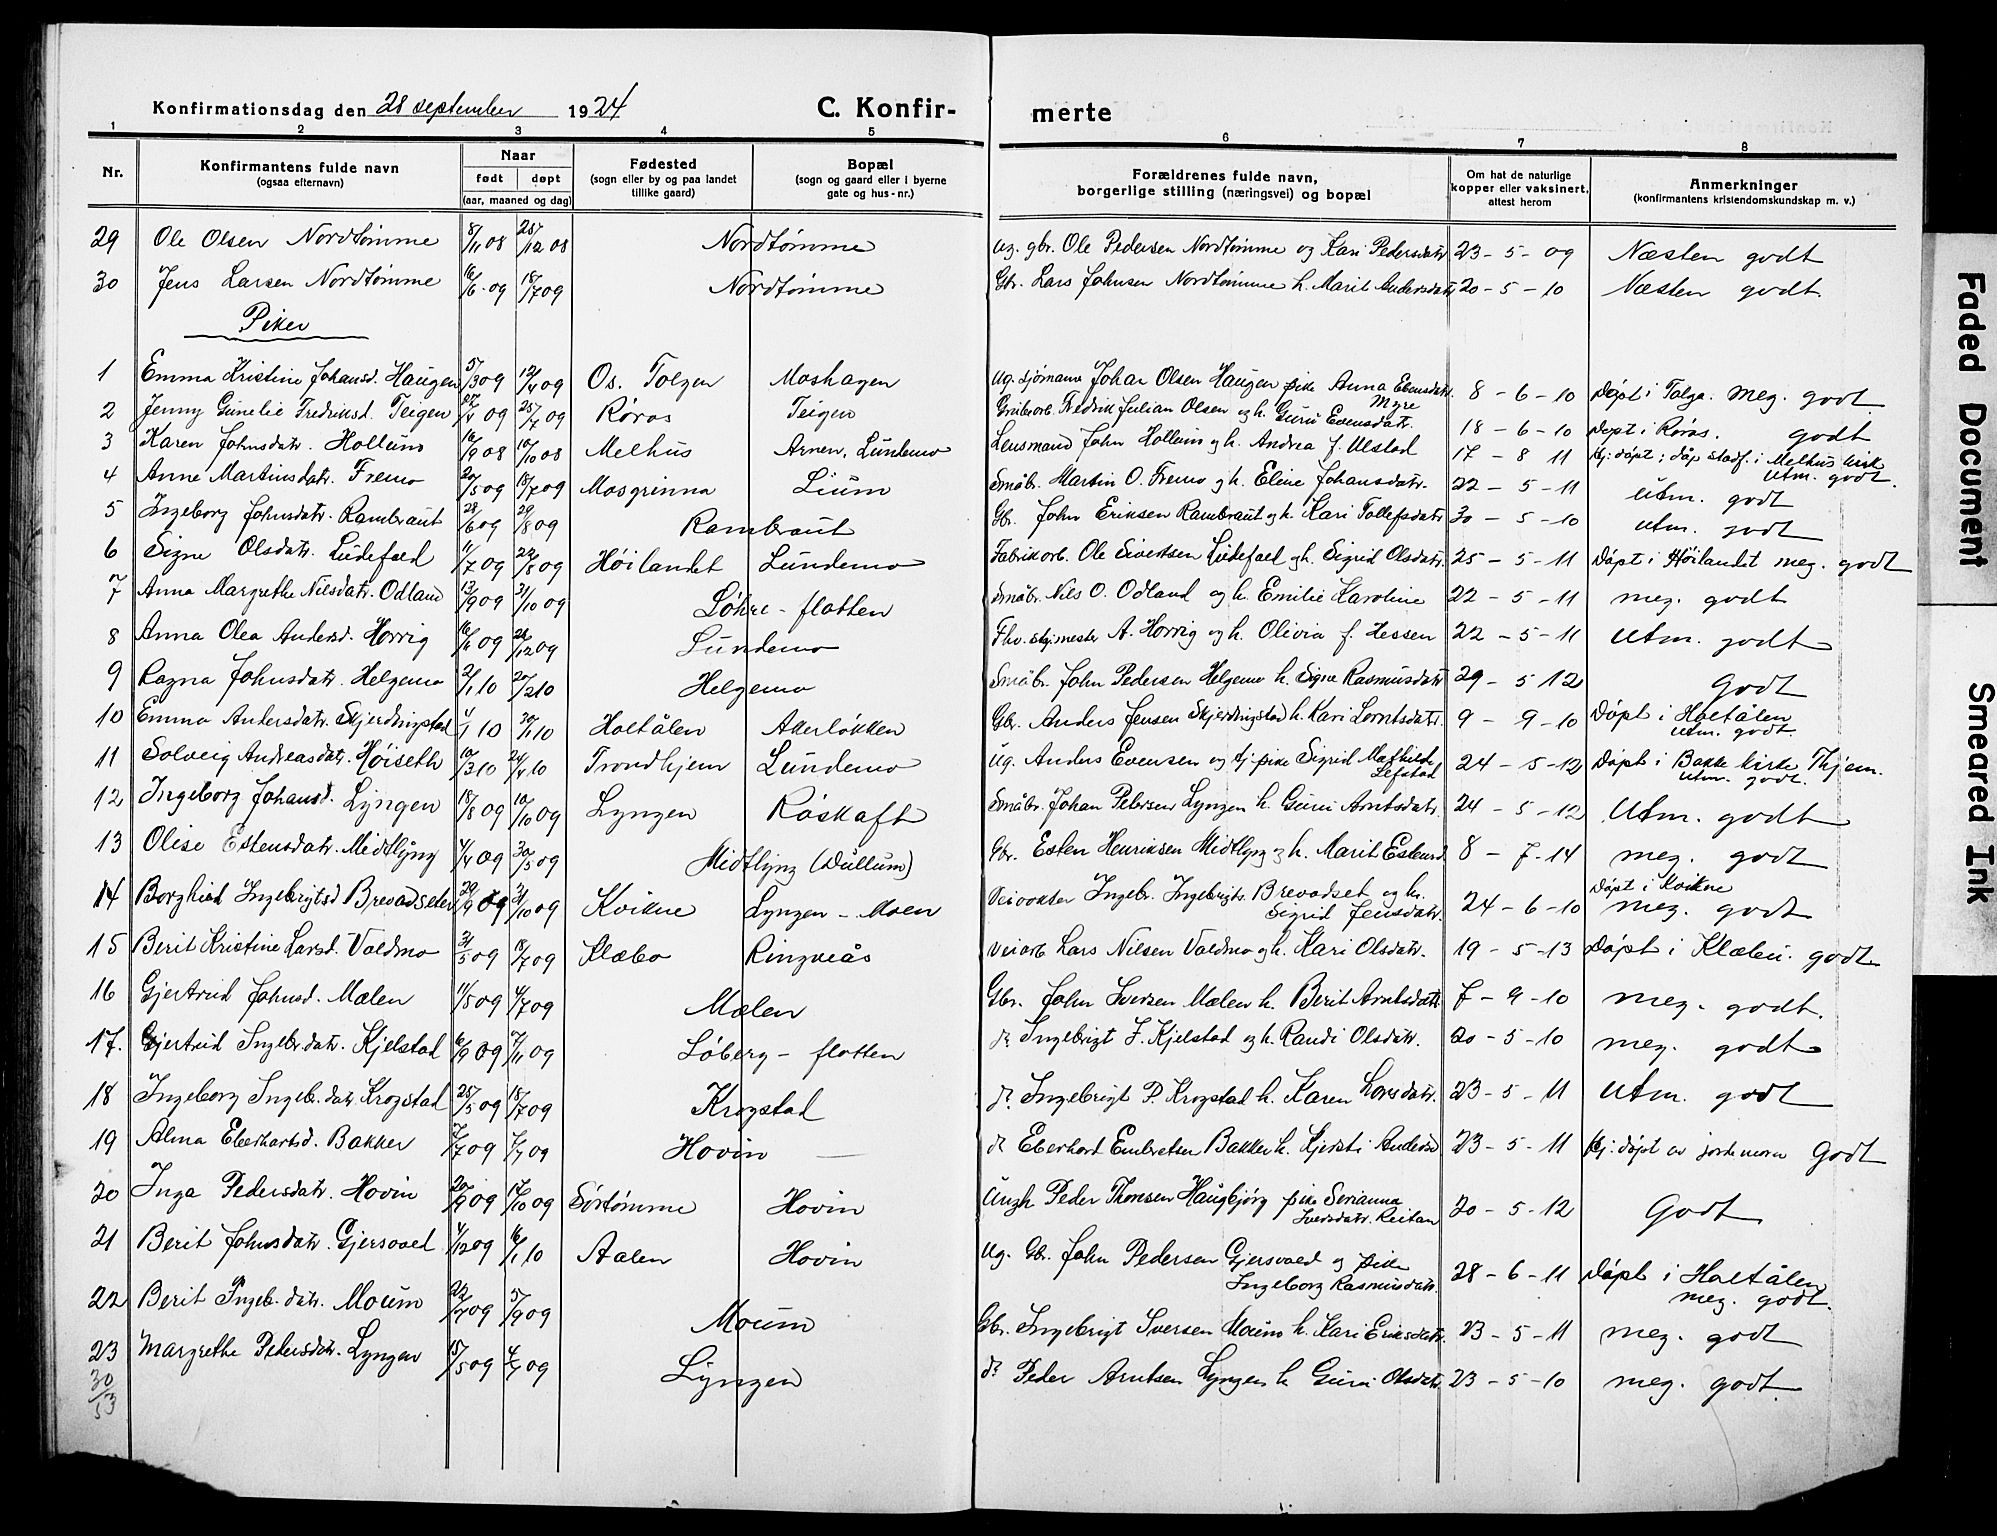 Konfirmationsdag den 28 september 1924 C. Konfir- merte
1 2 3 4 5 6 7 8
Nr. Konfirmantens fulde navn (ogsaa efternavn) Naar født døpt (aar, maaned og dag) Fødested (sogn eller by og paa landet tillike gaard) Bopæl (sogn og gaard eller i byerne gate og hus-nr.) Forældrenes fulde navn, borgerlige stilling (næringsvei) og bopæl Om hat de naturlige kopper eller vaksinert, attest herom Anmerkninger (konfirmantens kristendomskundskap m. v.)
29 Ole Olsen Nordtømme 8/11 08 25/12 08 Nordtømme ug. gbr. Ole Pedersen Nordtømme og Kari Pedersdatr 23-5-09 Næsten godt
30 Jens Larsen Nordtømme 16/6-09 18/7 09 Nordtømme Gbr. Lars Johnsen Nordtømme h. Marit Andersdatr 20-5-10 Næsten godt.
Piker
1 Emma Kristine Johansd. Haugen 5/3 09 12/4 09 Os. Tolgen Moshagen ug. sjømann Johan Olsen Haugen pike Anna Ebensdatr. Myre 8-6-10 Døpt i Tolga. meg. godt
2 Jenny Gunelie Fredriksd. Teigen 09 25/7 09 Røros Teigen Grubearb. Fredrik Julian Olsen og h. Guru Evensdatr. 18-6-10 Døpt i Røros. godt
3 Karen Johnsdatr. Hollum 16/9 08 10/10 08 Melhus Arnen, Lundemo Lensmand John Hollum og h. Andrea f. Ulstad 17-8 11 Hj: døpt; dåp stadf. i Melhus kirk utm. godt.
4 Anne Martinsdatr. Fremo 20/5 09 18/7 09 Mosgrinna Lium Småbr. Martin O. Fremo og h. Eline Johansdatr. 22-5-11 utm. godt
5 Ingeborg Johnsdatr. Rambraut 28/6 09 29/8 09 Rambraut Gbr. John Eriksen Rambraut og h. Kari Tollefsdatr 30-5-10 utm. godt
6 Signe Olsdatr. Ludefæd 11/7 09 22/8 09 Høilandet Lundemo Fabrikarb. Ole Sivertsen Ludefæd og h. Sigrid Olsdatr. 25-5-11 Døpt i Høilandet meg. godt
7 Anna Margrethe Nilsdatr. Odland 13/9 09 31/10 09 Løhre-flotten Småbr. Nils O. Odland og h. Emilie Karoline 22-5-11 meg. godt
8 Anna Olea Andersd. Horrig 09 12 09 Lundemo Fhv. A. Horrig og h. Olivia f. Hessen 22-5-11 Utm. godt
9 Ragna Johnsdatr. Helgemo 2/1 10 20/2 10 Helgemo Småbr. John Pedersen Helgemo h. Signe Rasmusdatr 29-5 12 Godt
10 Emma Andersdatr. Skjerdingstad 4/1 10 30/1 10 Holtålen Akerløkken Gbr. Anders Jensen Skjerdingstad h. Kari Lorntsdatr. 9-9-10 Døpt i Holtålen utm. godt.
11 Solveig Andreasdatr. Høiseth 10/3 10 24/4 10 Trondhjem Lundemo ug. Anders Evensen og tj. pike Sigrid Mathilde Lefstad 24-5-12 Døpt i Bakke kirke Thjem. utm. godt.
12 Ingeborg Johansd. Lyngen 18/8 09 10/10 09 Lyngen Røskaft Småbr. Johan Petersen Lyngen h. Guru Arntsdatr. 24-5-12 Utm. godt
13 Olise Estensdatr. Midtlyng 4/4 09 30/5 09 Midtlyng (Dullum) Gbr. Esten Henriksen Midtlyng og h. Marit Estensd. 8-7-14 meg. godt
14 Borghild Ingebrigtsd Brevadseter 20/9 09 31/10 09 Kvikne Lyngen-Moen Veivokter Ingebr. Ingebrigts. Brevadset og h. Sigrid Jensdatr. 24-6-10 Døpt i Kvikne meg. godt
15 Berit Kristine Larsd. Valdmo 31/5 09 18/7 09 Klæbo Ringveås Veiarb Lars Nilsen Valdmo og h. Kari Olsdatr. 19-5-13 Døpt i Klæbu. godt
16 Gjertrud Johnsd. Mælen 11/5 09 4/7 09 Mælen Gbr. John Iversen Mælen h. Berit Arntsdatr 7-9-10 meg. godt.
17. Gjertrud Ingebr.datr. Kjelstad 16/9 09 7/11 09 Løberg-flotten do Ingebrigt J. Kjelstad og h. Randi Olsdatr. 20-5-10 meg. godt
18 Ingeborg Ingebr.datr Krogstad 25/5 09 18/7 09 Krogstad do. Ingebrigt P. Krogstad h. Karen Larsdatr. 23-5-11 Utm. godt
19 Alma Eberhartsd. Bakker 7/7 09 7/7 09 Hovin do Eberhard Embretsen Bakker h. Kjersti Andersd 23-5-11 Hj: døpt av jordemorn Godt
20 Inga Pedersdatr. Hovin 20/9 09 17/10 09 Sørtømme Hovin Ungk Peder Thomsen Haugbjørg pike Serianna Iversdatr. Reitan 20-5-12 Godt
21 Berit Johnsdatr. Gjersvold 4/12 09 16/1 10 Aalen Hovin ug. Gbr. John Pedersen Gjersvold og pike Ingeborg Rasmusdatr. 28-6-11 Døpt i Holtålen meg. godt.
22 Berit Ingebr.datr. Moum 22/7 09 5/9 09 Moum Gbr. Ingebrigt Iversen Moum h. Kari Eriksdatr. 23-5-11 meg. godt
23 Margrethe Pedersdatr. Lyngen 15/5 09 4/7 09 Lyngen do Peder Arntsen Lyngen h Guru Olsdatr. 23-5-10 meg. godt.
30
53
Faded Document
Smeared Ink